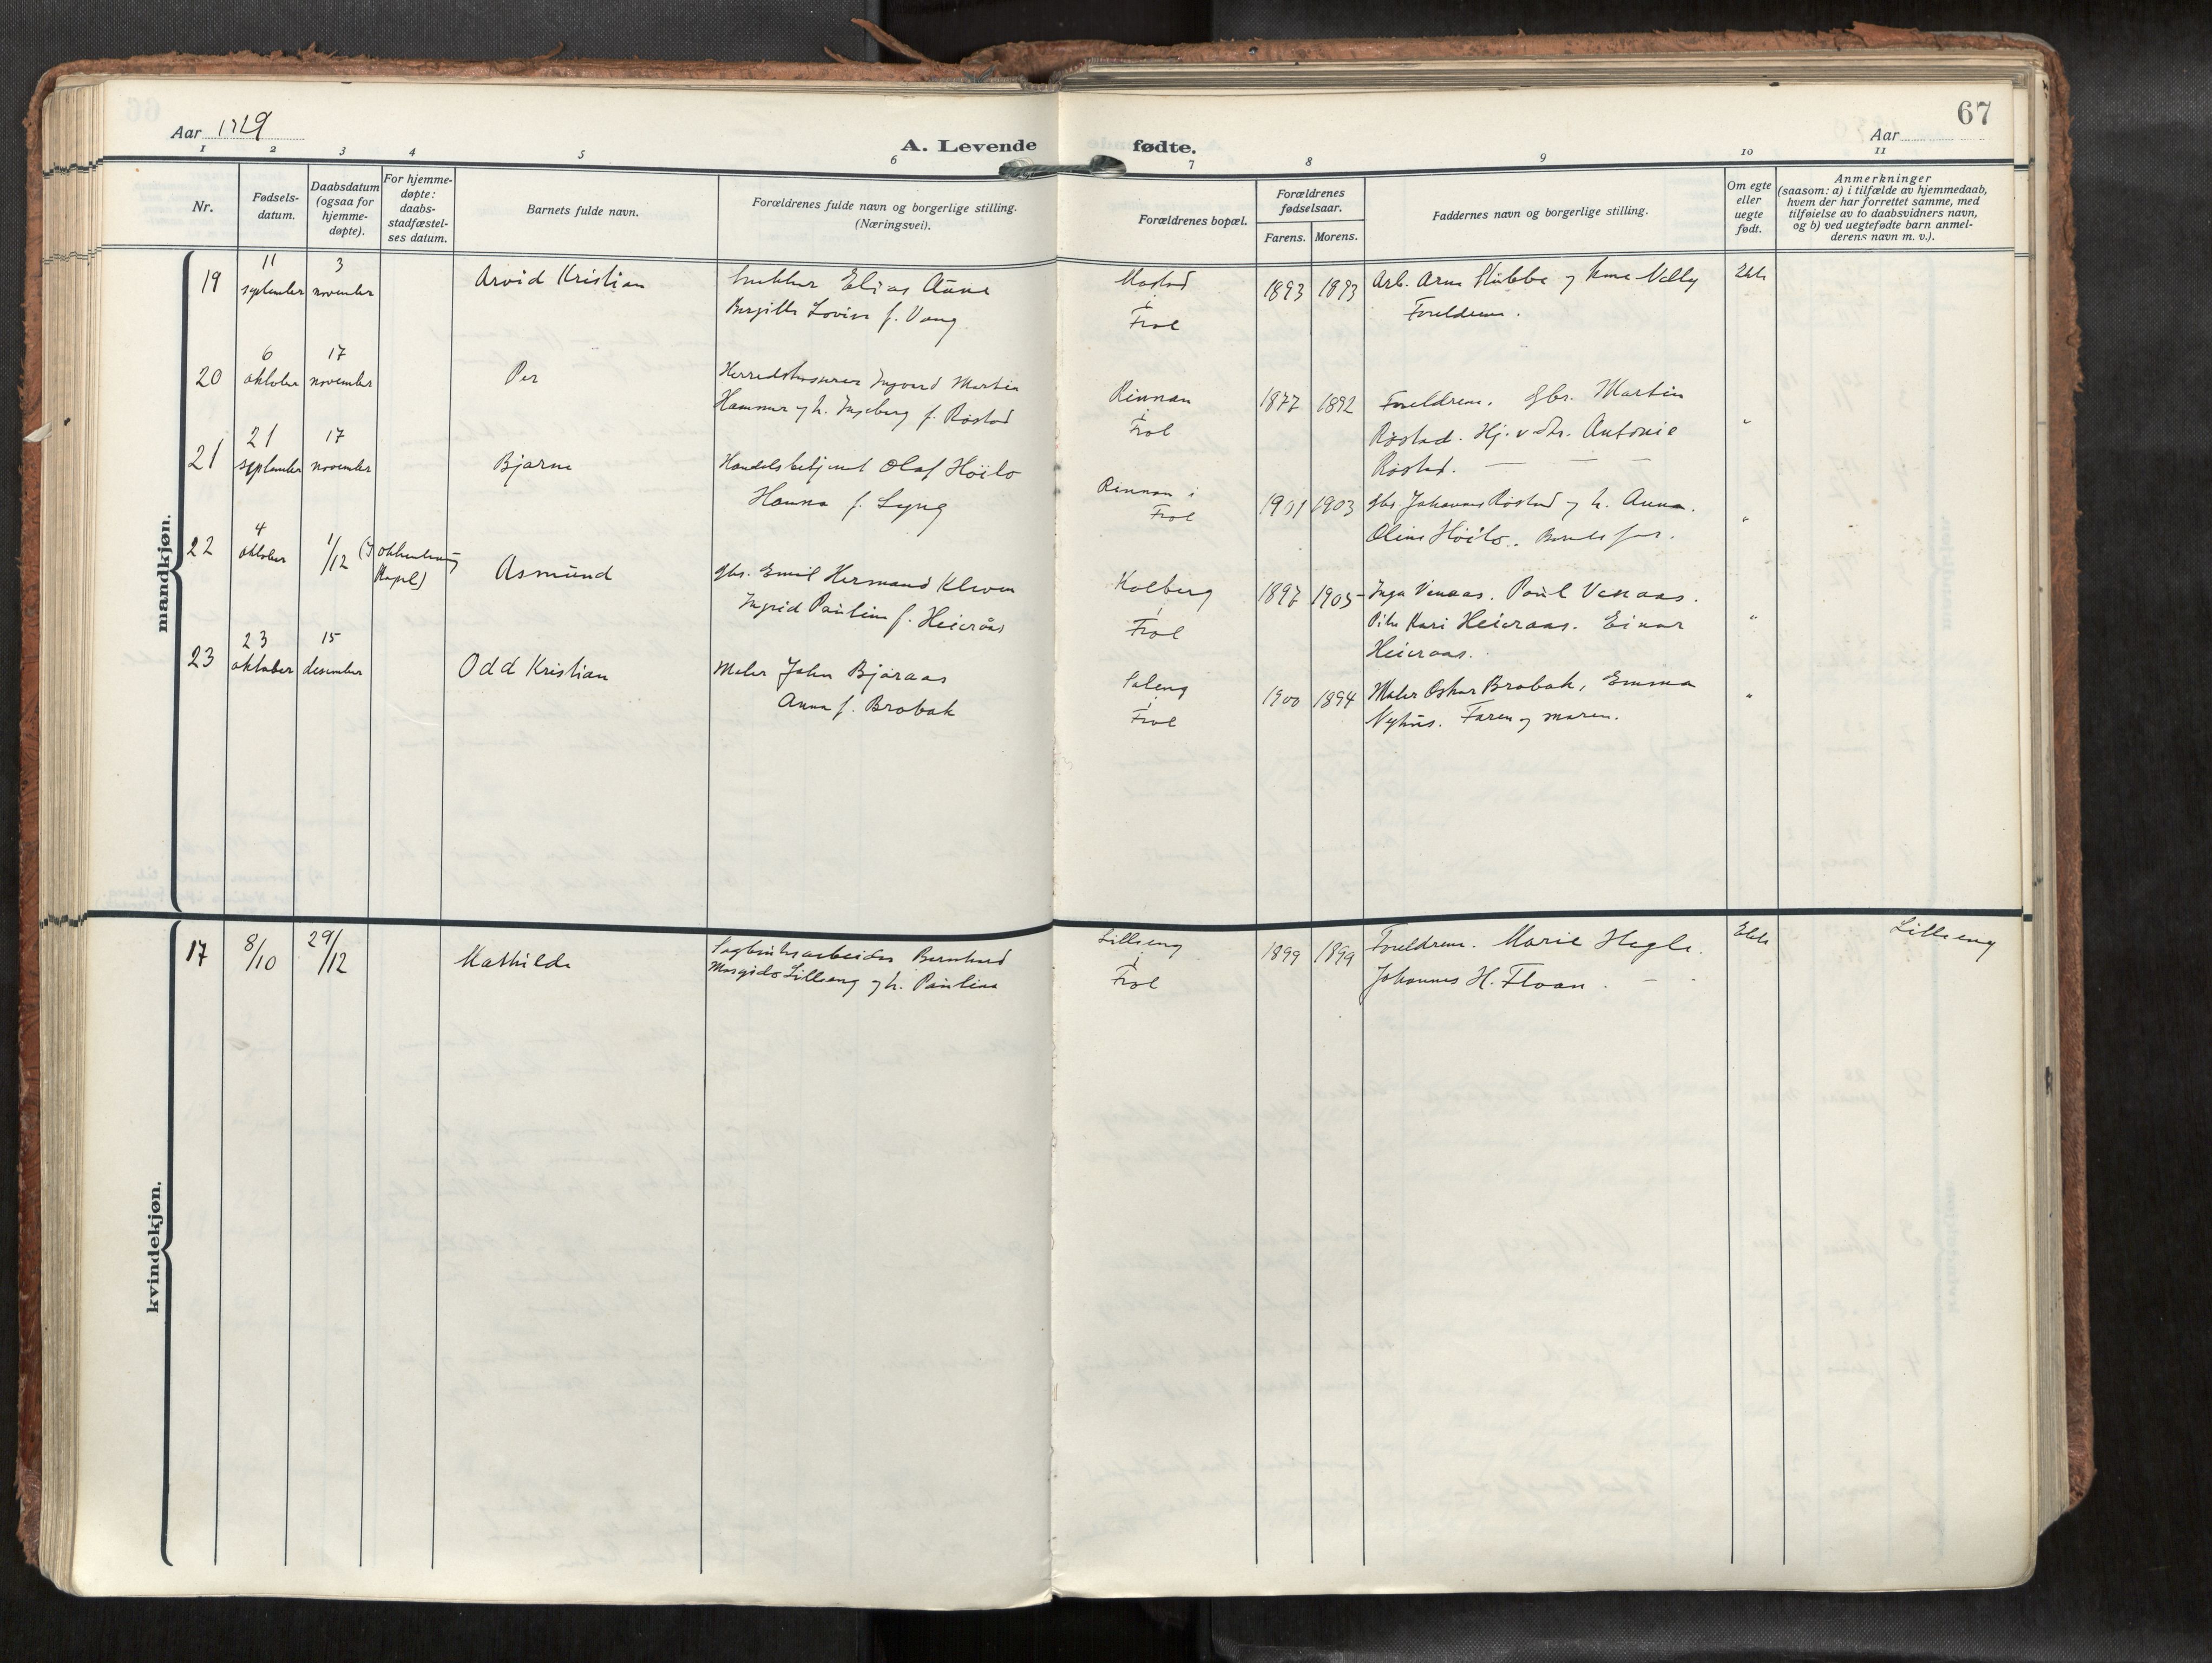 67
Aar 1929
A. Levende fødte.
Aar
1 2 3 4 5 6 7 8 9 10 11
Nr.
Fødsels-
datum.
Daabsdatum
(ogsaa for
hjemme-
døpte).
For hjemme-
døpte:
daabs-
stadfæstel-
ses datum.
Barnets fulde navn.
Forældrenes fulde navn og borgerlige stilling.
(Næringsvei).
Forældrenes bopæl.
Forældrenes
fødselsaar.
Farens. Morens.
Faddernes navn og borgerlige stilling.
Om egte
eller
uegte
født.
Anmerkninger
(saasom: a) i tilfælde av hjemmedaab,
hvem der har forrettet samme, med
tilføielse av to daabsvidners navn,
og b) ved uegtefødte barn anmel-
derens navn m. v.).
mandkjøn.
19
11
september
3
november
Arvid Kristian
Elias Aune
Lovise f. Vang
Mostad
i
Frol
1893 1893
Arb. Arne Stubbe og kone Nelly
Foreldrene.
Ekte
20
6
oktober
17
november
Per
Herredskasserer Ingvard Martin
Hammer og h. Ingeborg f. Røstad
Rinnan
i
Frol
1877 1892
Foreldrene. Gbr. Martin
Røstad. Hj.v. dtr. Antonie
Røstad. — — —
"
21
21
september
17
november
Bjarne
Handelsbetjent Olaf Höilo
Hanna f. Lyng
Rinnan i
Frol
1901 1903
Gbr Johannes Røstad og h. Anna.
Oline Höilo. Barnets far.
"
22
4
oktober
1/12
(i Okkenhaug
Kapel)
Asmund
Gbr. Emil Hermand Kleven
Ingrid Pauline f. Heieraas
Kolberg
i
Frol
1897 1905
Inga Venaas. Paul Venaas.
Pike Kari Heieraas. Einar
Heieraas.
"
23
23
oktober
15
desember
Odd Kristian
Maler John Bjøraas
Anna f. Brobak
Saleng
i
Frol
1900 1894
Maler Oskar Brobak, Emma
Nyhus. Faren og moren.
"
kvindekjøn.
17
8/10
29/12
Mathilde
Sagbruksarbeider Bernhard
Margido Lilleeng og h. Pauline
Lilleeng
i
Frol
1899 1899
Foreldrene. Marie Hegle.
Johannes H. Floan. — -
Ekte
Lilleeng